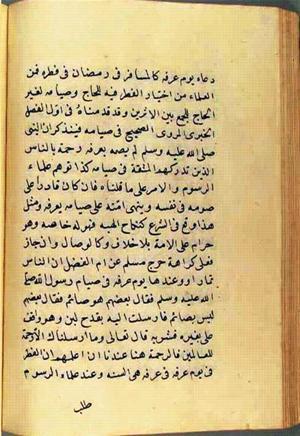 دعاء يوم عرفه كالمسافر فى رمضان فى فطره فمن
العلماء من اختيار الفطر فيه للحاج وصيامه لغير
الحاج للجمع بين الاثرين وقد قدمناه فى اول الفصل
الخبرى المروى الصحيح فى صيامه فينذكر ان النبى
صلى الله عليه وسلم لم يصمه بعرفه رحمة بالناس
الذين تدركهم المشقة فى صيامه كذا توهم علماء
الرسوم والامر على ما قلناه فان كان قادرا على
صومه فى نفسه وينهى امته على صيامه بعرفه ومثل
هذا وقع فى الشرع كنكاح الهبه فهو له خاصه وهو
حرام على الامة بلا خلاف وكالوصال وان جاز
فعلى كراهة خرج مسلم عن ام الفضل ان الناس
تماروا عندها يوم عرفه فى صيام رسول الله صلى
الله عليه وسلم فقال بعضهم هو صائم فقال بعضهم
ليس بصائم فارسلت اليه بقدح لبن وهو واقف
على بعيره فشربه قال تعالى وما ارسلناك الا رحمة
للعالمين فالرحمة هنا عندنا ان اعلمهم ان الفطر
فى يوم عرفه فى عرفه هى السنه وعند علماء الرسوم
طلب